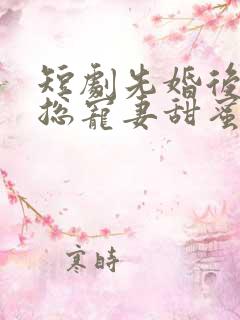 短劇先婚後
總寵妻甜蜜
寒時